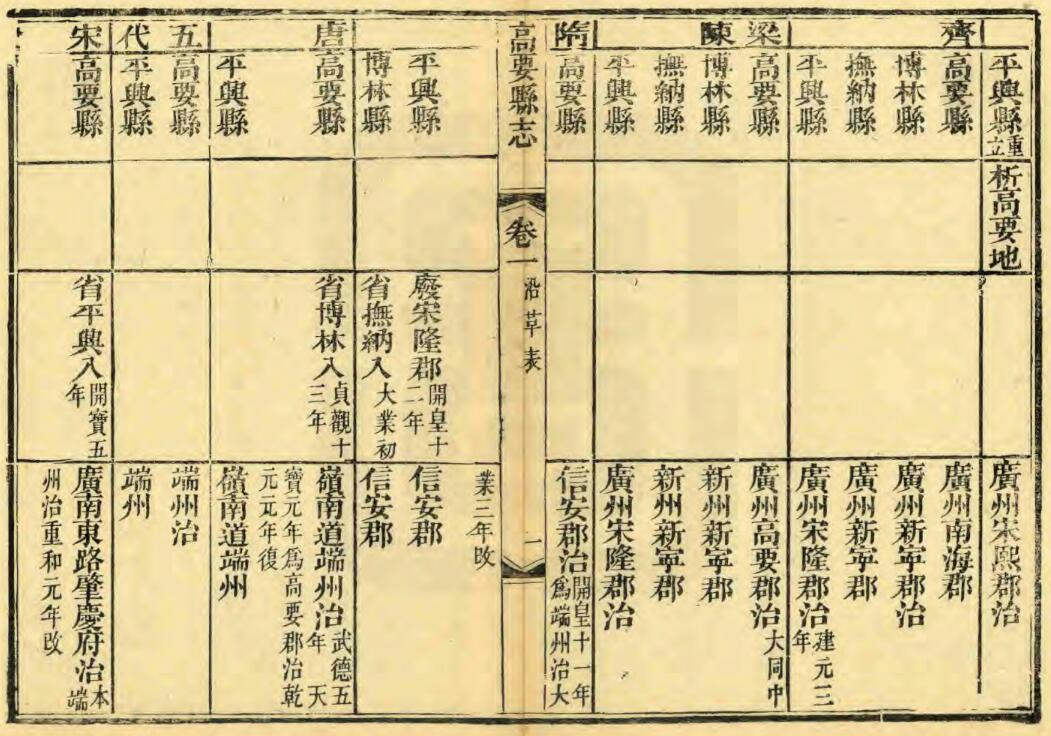 平興縣重立
析高要地
廣州宋熙郡治
齊
高要縣
廣州南海郡
博林縣
廣州新寧郡治
撫納縣
廣州新寧郡
平興縣
廣州宋隆郡治建元三年
梁陳
高要縣
廣州高要郡治大同中
博林縣
新州新寧郡
撫納縣
新州新寧郡
平興縣
廣州宋隆郡治
隋
高要縣
信安郡治開皇十一年為端州治大
高要縣志
卷一
沿草表
一
業三年改
平興縣
廢宋隆郡開皇十二年
信安郡
博林縣
省撫納入大業初
信安郡
唐
高要縣
省博林入貞觀十三年
嶺南道端州治武德五年天
寶元年為高要郡治乾
元元年復
平興縣
嶺南道端州
五代
高要縣
端州治
平興縣
端州
宋
高要縣
省平興入開寶五年
廣南東路肇慶府治本端
州治重和元年改